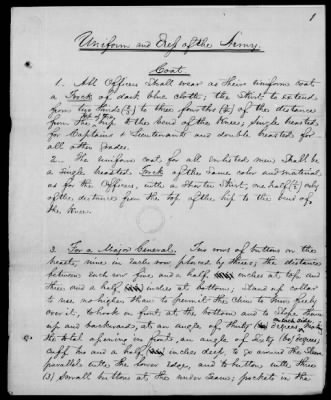 1
Uniform and Dress of the Army.
Coat.
1. All Officers Shall wear as their uniform coat
a Frock of dark blue cloth; the Skirt to extend
from two thirds (2/3) to three fourths (3/4) of the distance
top of the
from the hip to the bend of the Knee; single breasted
for Captains & Lieutenants and double breasted for
all other grades.
2. The uniform coat, for all enlisted men Shall be
a single breasted Frock of the same color and material,
as for the Officers, with a Shorter Skirt, one half (1/2) only
of the distance from the top of the hip to the bend of
the Knee.
3. For a Major General. Two rows of buttons on the
breast, nine in each row placed by threes; the distance
between each row five and a half inches at top and
three and a half inches at bottom; stand up collar
to rise no higher than to permit the Chin to turn freely
over it, to hook in front at the bottom and to Slope thence
on each side, making
up and backwards, at an angle of thirty (30) degrees
the total opening in front, an angle of Sixty (60) degrees;
cuff two and a half inches deep, to go around the Sleeve
parallel with the lower edge, and to button with three
(3) Small buttons at the under Seam; pockets in the